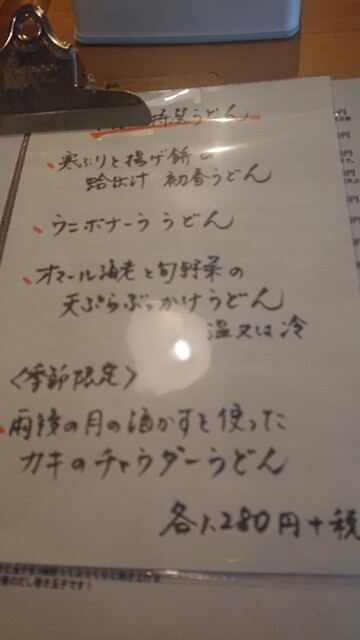 特製うどん
寒ぶりと揚げ餅の
蛤出汁 初春うどん
ウニボナーラうどん
オマール海老と旬野菜の
天ぷらぶっかけうどん
温又は冷
〈季節限定〉
雨後の月の酒かすを使った
カキのチャウダーうどん
各1,280円+税